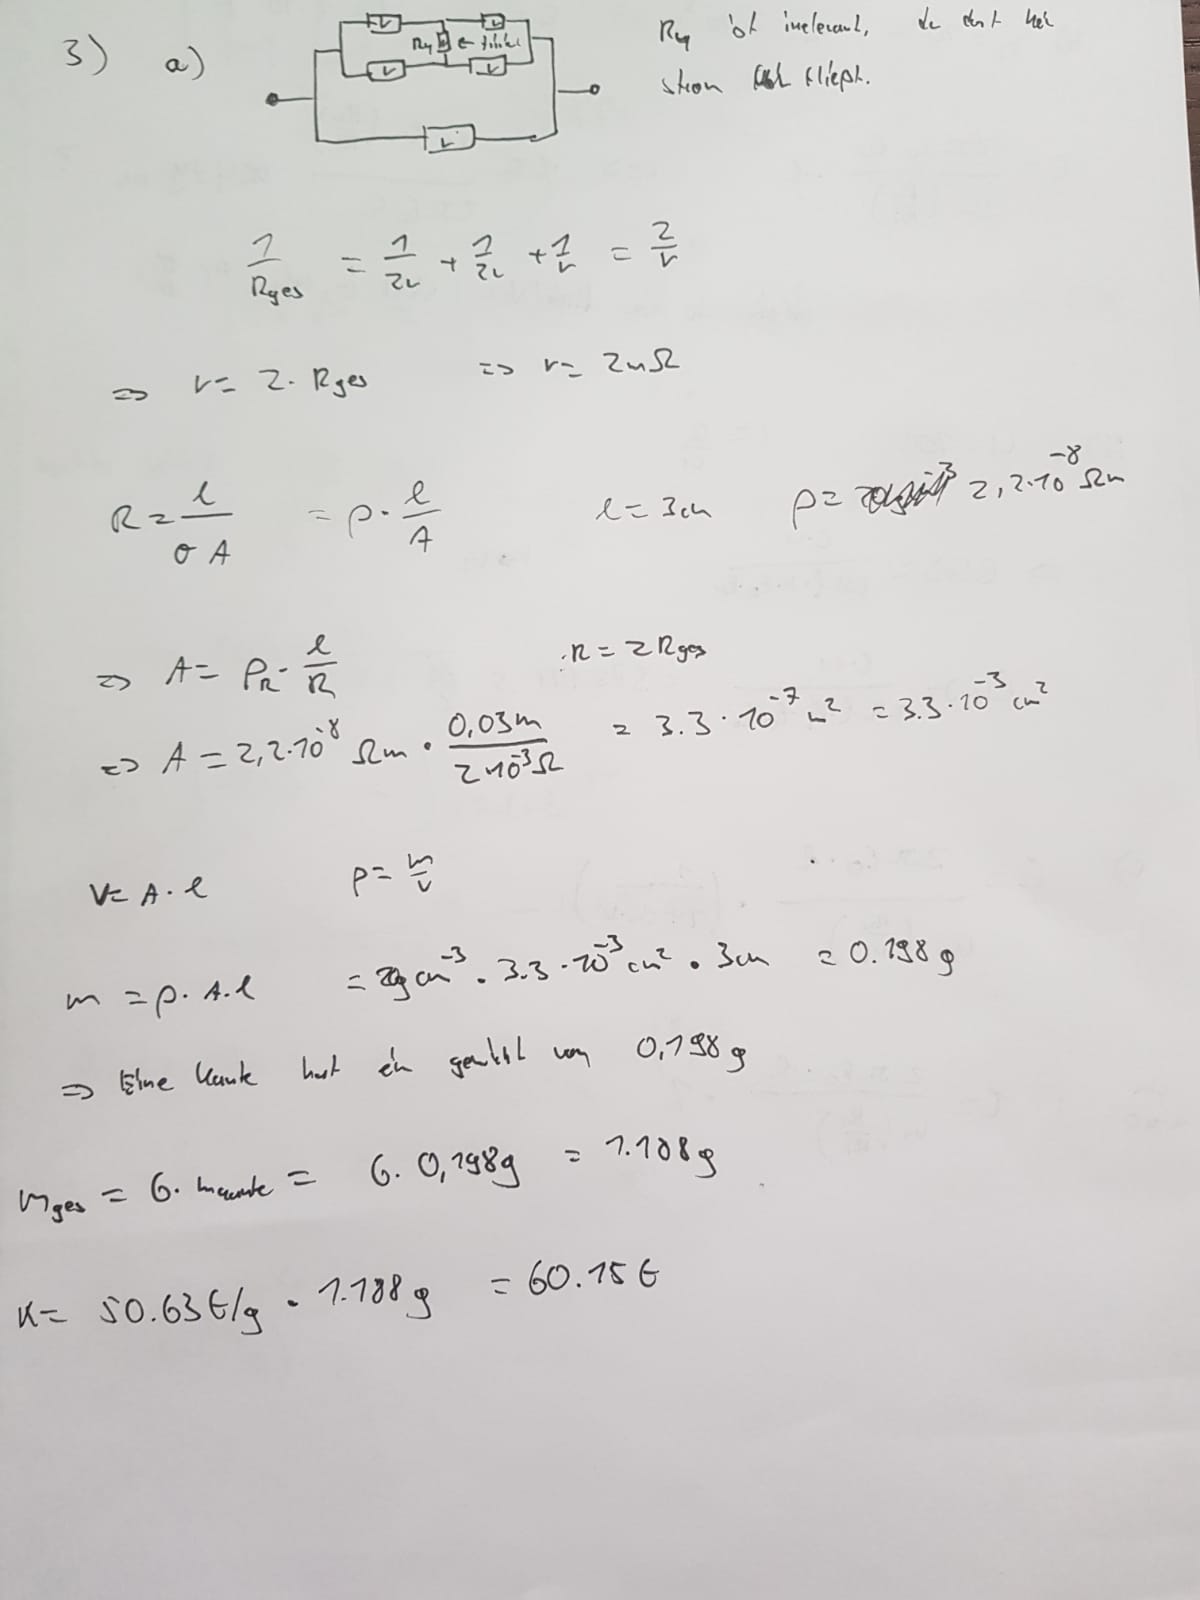 3) a) R₄ ist irrelevant, da dort kein
strom fließt.
r r
R₄ ←
r r
r
1/Rges = 1/2r + 1/2r + 1/r = 2/r
=> r = 2 · Rges => r = 2mΩ
R = l/(σ A) = ρ · l/A l = 3cm ρ = 2,2·10⁻⁸ Ωm
=> A = ρR · l/R R = 2 Rges
=> A = 2,2·10⁻⁸ Ωm · 0,03m/(2·10⁻³Ω) = 3.3 · 10⁻⁷ m² = 3.3·10⁻³ cm²
V = A · l ρ = m/V
m = ρ · A · l = g cm⁻³ · 3.3 · 10⁻³ cm² · 3cm = 0.198 g
=> Eine Kante hat ein gewicht von 0,198 g
mges = 6 · mkante = 6 · 0,198g = 1.188 g
K = 50.63 €/g · 1.188 g = 60.15 €